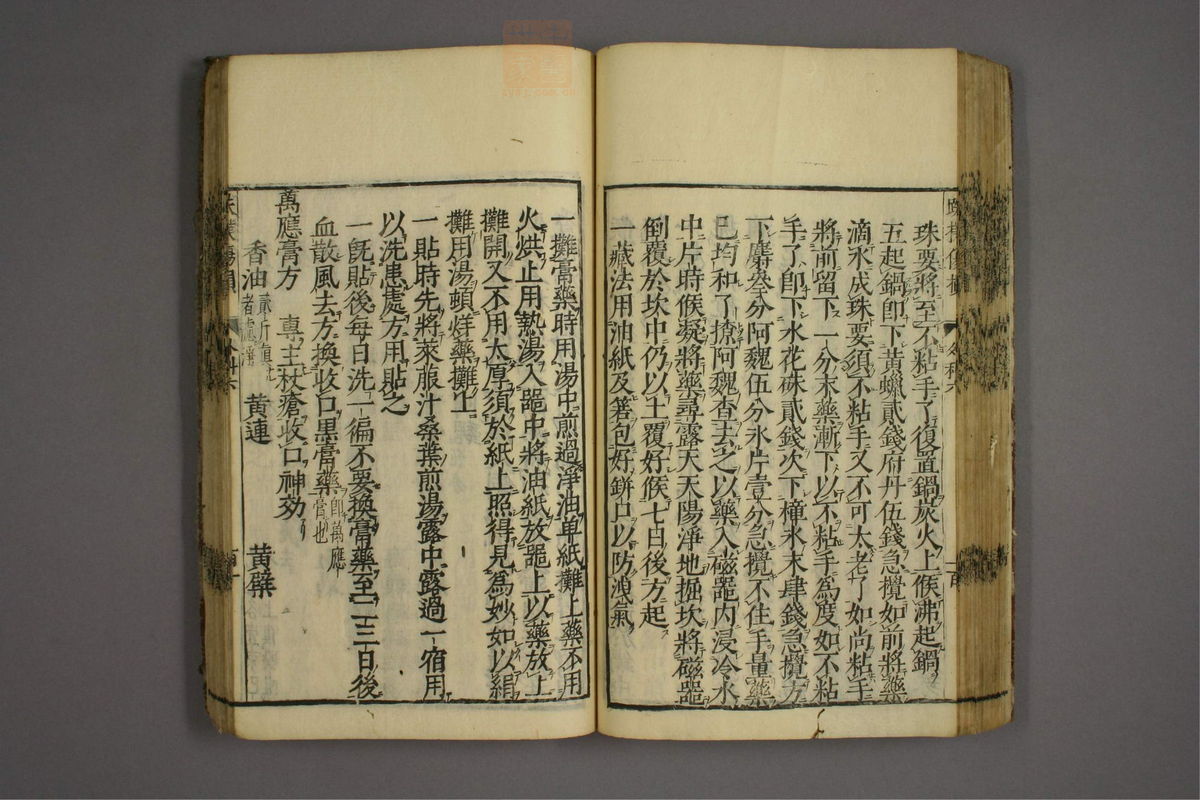 珠要將至不粘手了復置鍋炭火上候沸起鍋
五起鍋即下黃蠟貳錢府丹伍錢急攪如前將藥
滴水成珠要須不粘手又不可太老了如尚粘手
將前留下一分末藥漸下以不粘手為度如不粘
手了即下水花硃貳錢次下樟氷末肆錢急攪方
下麝叄分阿魏伍分氷片壹分急攪不住手量藥
已均和了撩阿魏查去之以藥入磁噐內浸冷水
中片時候凝將藥尋露天天陽淨地掘坎將磁噐
倒覆於坎中仍以土覆好候七日後方起
一藏法用油紙及箬包好餅口以防洩氣
一攤膏藥時用湯中煎過淨油单紙攤上藥不用
火烘止用熱湯入噐中將油紙放噐上以藥放上
攤開又不用太厚須於紙上照得見為妙如以絹
攤用湯頓烊藥攤上
一貼時先將萊菔汁桑葉煎湯露中露過一宿用
以洗患處方用貼之
一旣貼後每日洗一徧不要換膏藥至二三日後
血散風去方換收口黑膏藥即萬應膏也
萬應膏方 專主杖瘡收口神効
香油 黃連 黃蘗